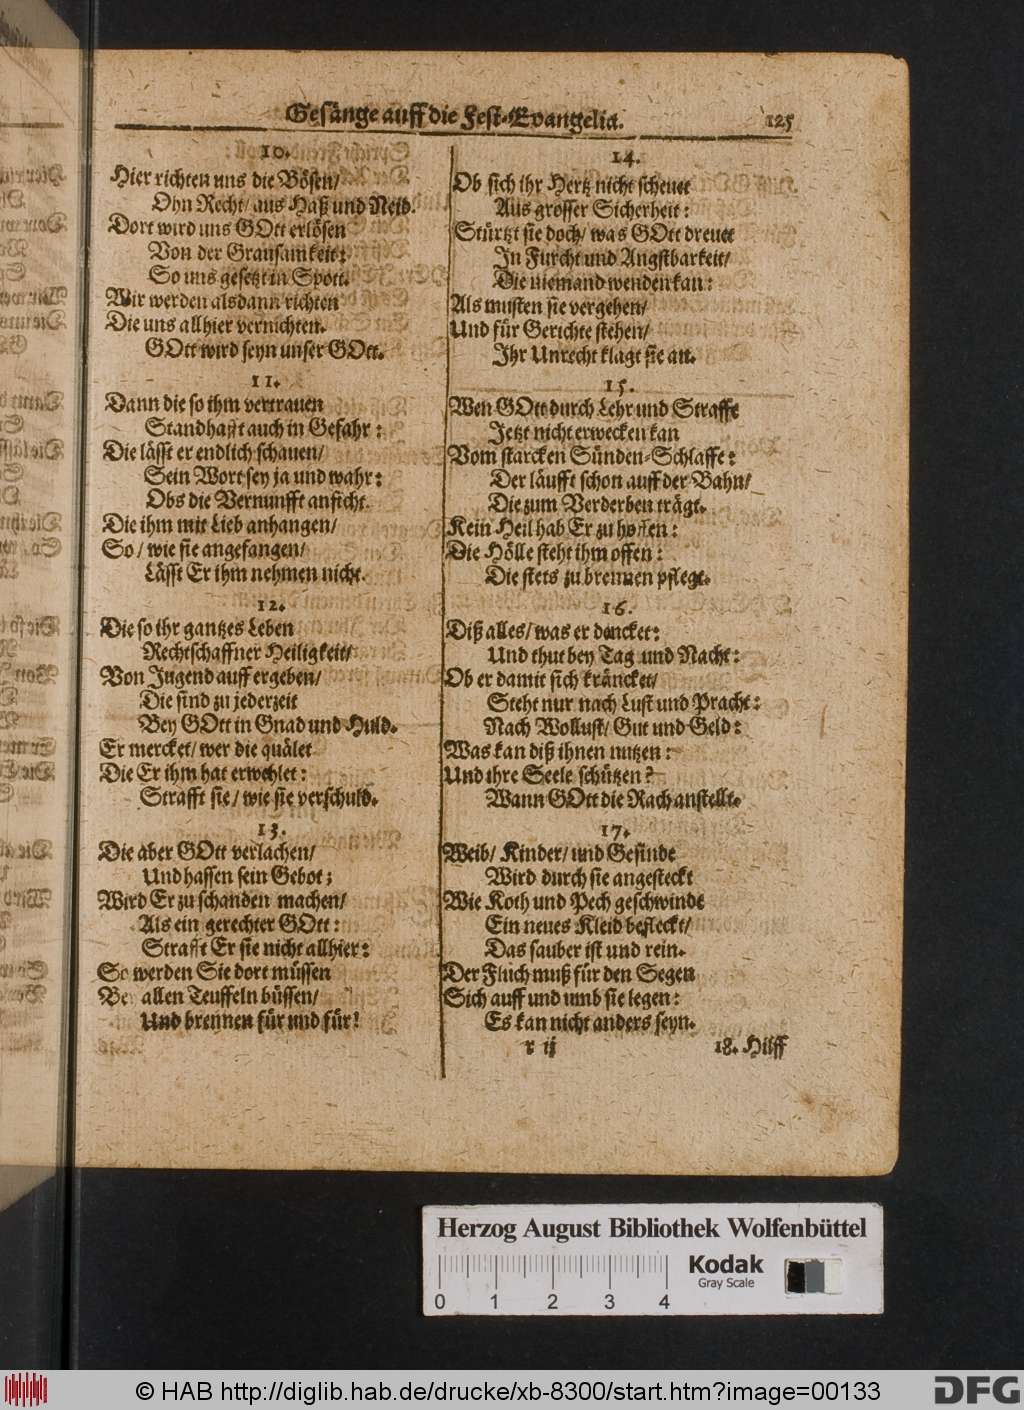 Gesänge auff die Fest-Evangelia. 125
10.
Hier richten uns die Bösen/
Ohn Recht/ aus Haß und Neid.
Dort wird uns GOtt erlösen
Von der Grausamkeit:
So uns gesetzt in Spott.
Wir werden alsdann richten
Die uns allhier vernichten.
GOtt wird seyn unser GOtt.
11.
Dann die so ihm vertrauen
Standhafft auch in Gefahr:
Die lässt er endlich schauen/
Sein Wort sey ja und wahr:
Obs die Vernunfft anficht.
Die ihm mit Lieb anhangen/
So/ wie sie angefangen/
Lässt Er ihm nehmen nicht.
12.
Die so ihr gantzes Leben
Rechtschaffner Heiligkeit/
Von Jugend auff ergeben/
Die sind zu jederzeit
Bey GOtt in Gnad und Huld.
Er mercket/ wer die quälet
Die Er ihm hat erwehlet:
Strafft sie/ wie sie verschuld.
13.
Die aber GOtt verlachen/
Und hassen sein Gebot;
Wird Er zu schanden machen/
Als ein gerechter GOtt:
Strafft Er sie nicht allhier:
So werden Sie dort müssen
Bey allen Teuffeln büssen/
Und brennen für und für!
14.
Ob sich ihr Hertz nicht scheuet
Aus grosser Sicherheit:
Stürtzt sie doch/ was GOtt dreuet
In Furcht und Angstbarkeit/
Die niemand wenden kan:
Als müsten sie vergehen/
Und für Gerichte stehen/
Ihr Unrecht klagt sie an.
15.
Wen GOtt durch Lehr und Straffe
Jetzt nicht erwecken kan
Vom starcken Sünden-Schlaffe:
Der läufft schon auff der Bahn/
Die zum Verderben trägt.
Kein Heil hab Er zu hoffen:
Die Hölle steht ihm offen:
Die stets zu brennen pflegt.
16.
Diß alles/ was er dencket:
Und thut bey Tag und Nacht:
Ob er damit sich kräncket/
Steht nur nach Lust und Pracht:
Nach Wollust/ Gut und Geld:
Was kan diß ihnen nutzen:
Und ihre Seele schützen?
Wann GOtt die Rach anstellt.
17.
Weib/ Kinder/ und Gesinde
Wird durch sie angesteckt
Wie Koth und Pech geschwinde
Ein neues Kleid befleckt/
Das sauber ist und rein.
Der Fluch muß für den Segen
Sich auff und umb sie legen:
Es kan nicht anders seyn.
r ij 18. Hilff
Herzog August Bibliothek Wolfenbüttel
Kodak
Gray Scale
0 1 2 3 4
© HAB http://diglib.hab.de/drucke/xb-8300/start.htm?image=00133
DFG